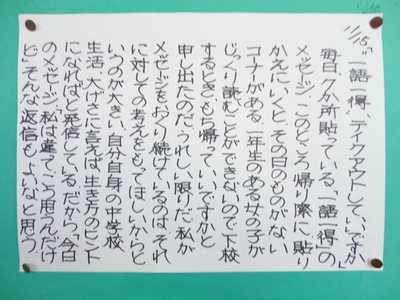 11/15㈫ 「一語一得、テイクアウトしていいですか」
毎日、夕か所貼っている「一語一得」の
メッセージ、このところ帰り際に、貼り
かえにいくと、その日のものがない
コーナーがある。一年生のある女の子が
じっくり読むことができないので下校
するとき、もち帰っていいですかと
申し出たのだ。うれしい限りだ。私が
メッセージをおくり続けているのは、それ
に対しての考えをもってほしいからと
いうのが大きい。自分自身の中学校
生活、大げさに言えば、生き方のヒント
になればと発信している。だから、「今日
のメッセージ、私は違って、こう思うんだけ
ど」そんな返信もよいなと思う。